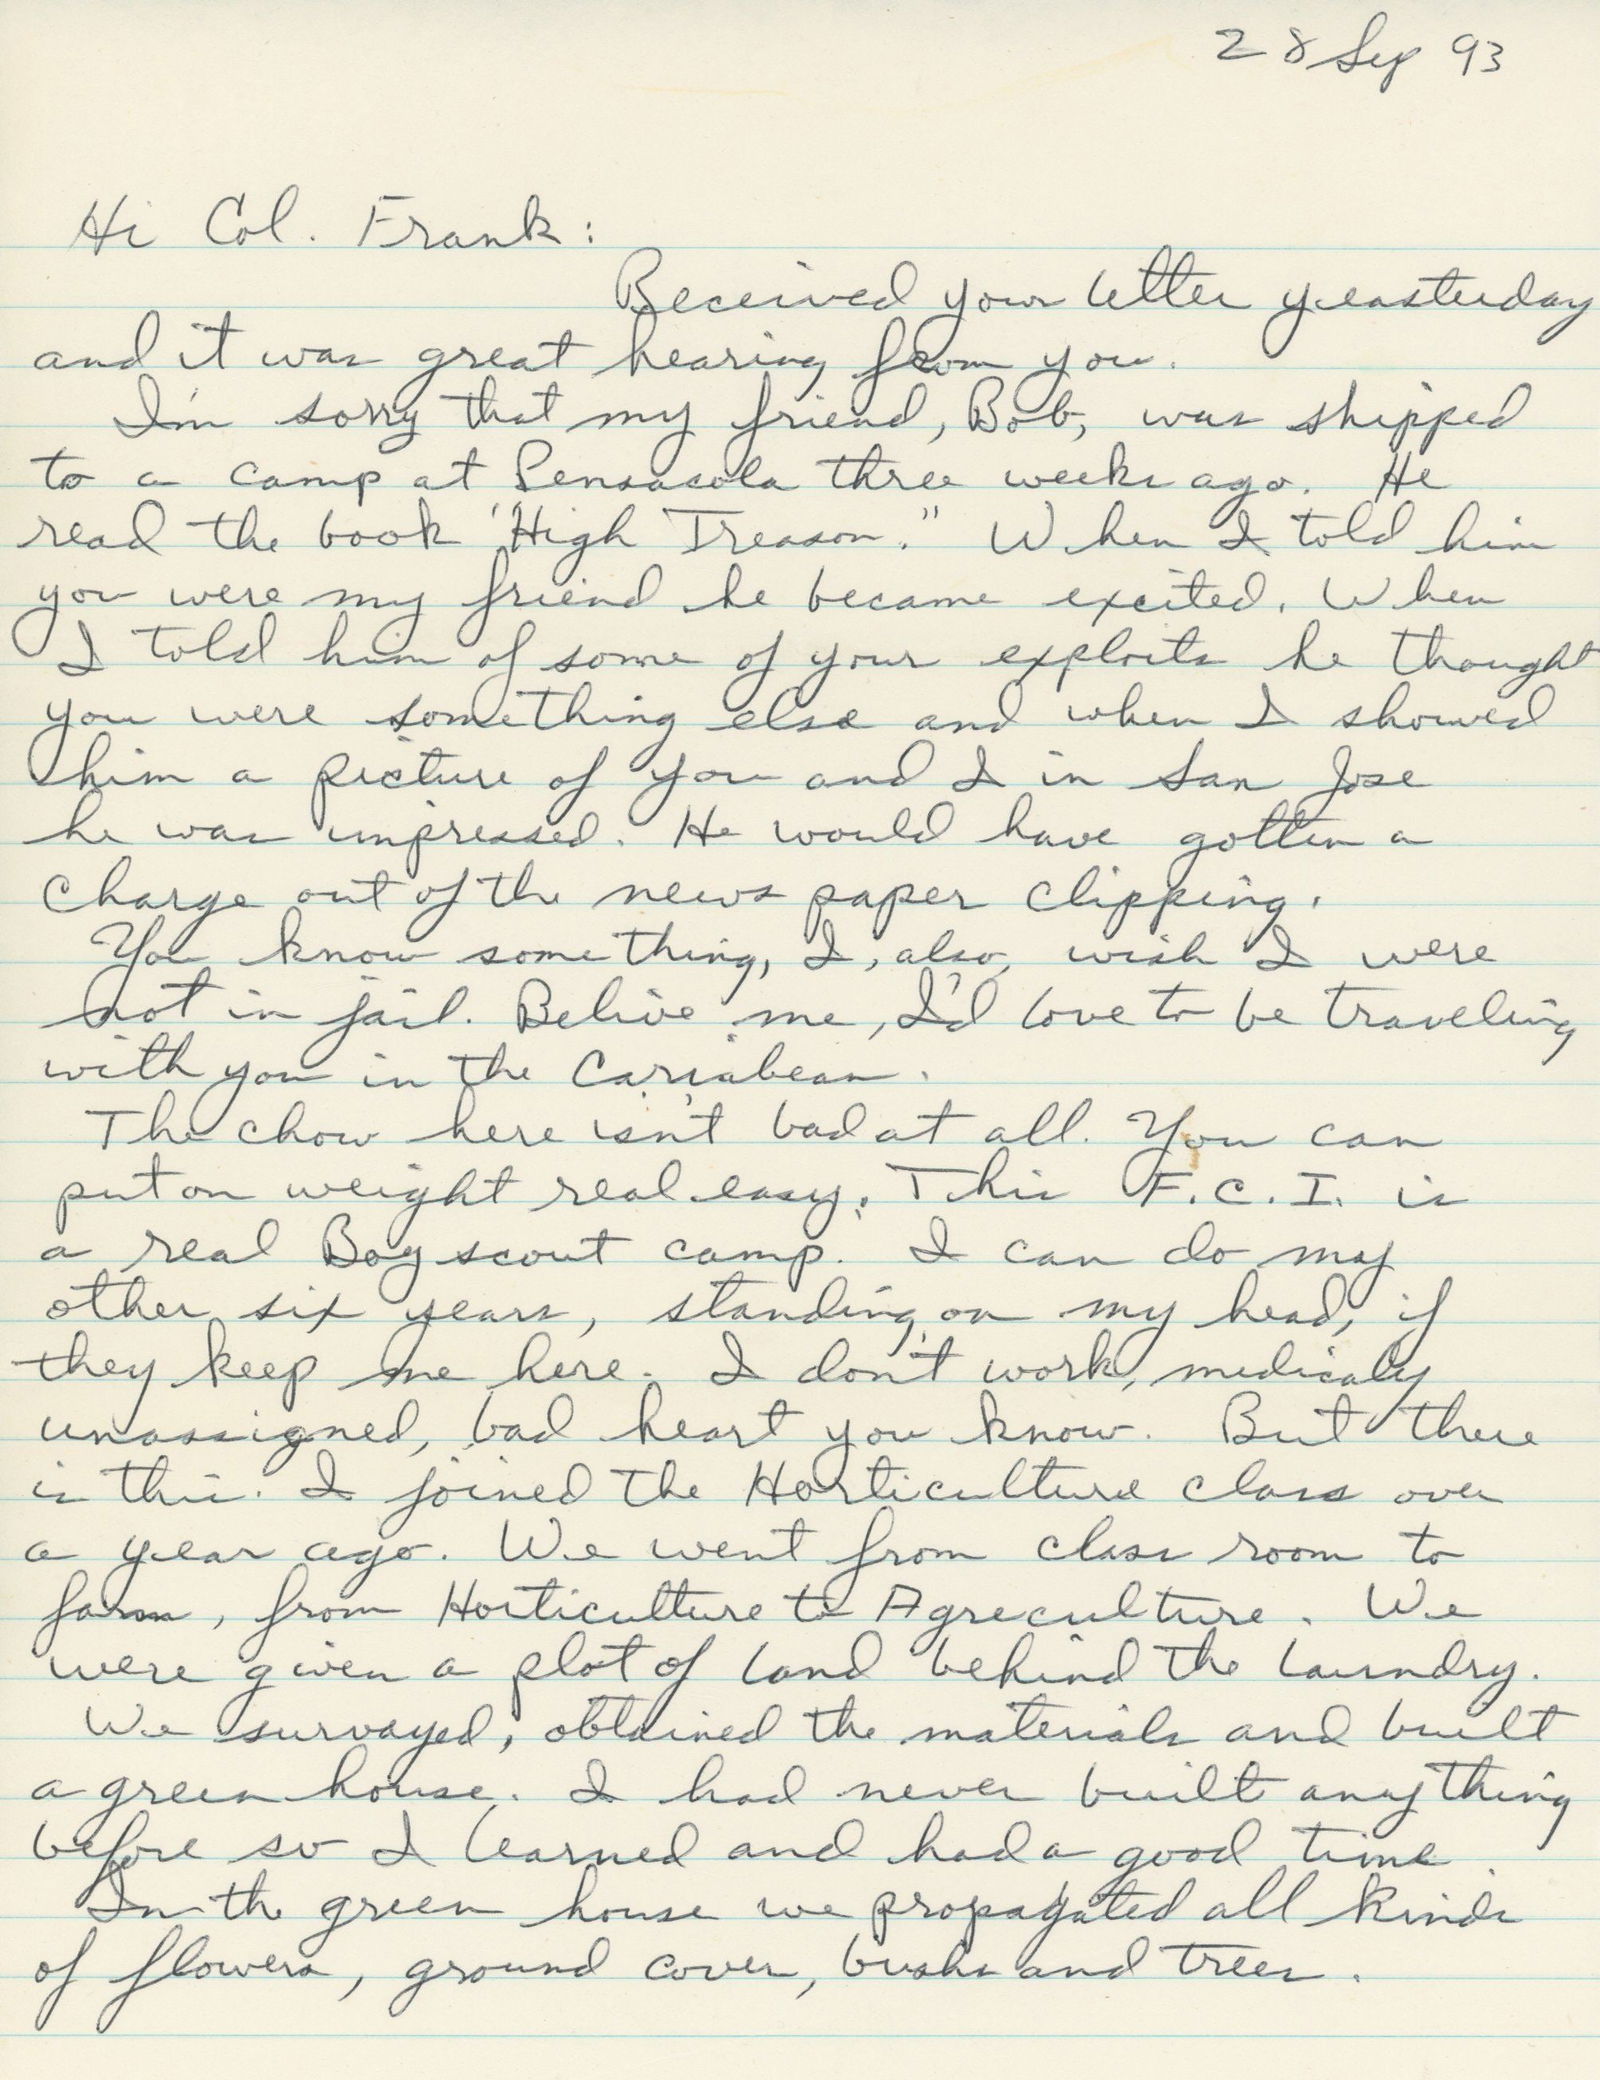 28 Sep 93
Hi Col. Frank:
Received your letter yeasterday
and it was great hearing from you.
I'm sorry that my friend, Bob, was shipped
to a camp at Pensacola three weeks ago. He
read the book "High Treason." When I told him
you were my friend he became excited. When
I told him of some of your exploits he thought
you were something else and when I showed
him a picture of you and I in San Jose
he was impressed. He would have gotten a
charge out of the news paper clipping.
You know something, I, also, wish I were
not in jail. Belive me, I'd love to be traveling
with you in the Cariabean.
The chow here isn't bad at all. You can
put on weight real easy. This F.C.I. is
a real Boy scout camp. I can do my
other six years, standing on my head, if
they keep me here. I don't work, medicaly
unassigned, bad heart you know. But there
is this. I joined the Horticulture class over
a year ago. We went from class room to
farm, from Horticulture to Agreculture. We
were given a plot of land behind the laundry.
We survayed, obtained the materials and built
a green house. I had never built anything
before so I learned and had a good time.
In the green house we propagated all kinds
of flowers, ground cover, bushs and trees.